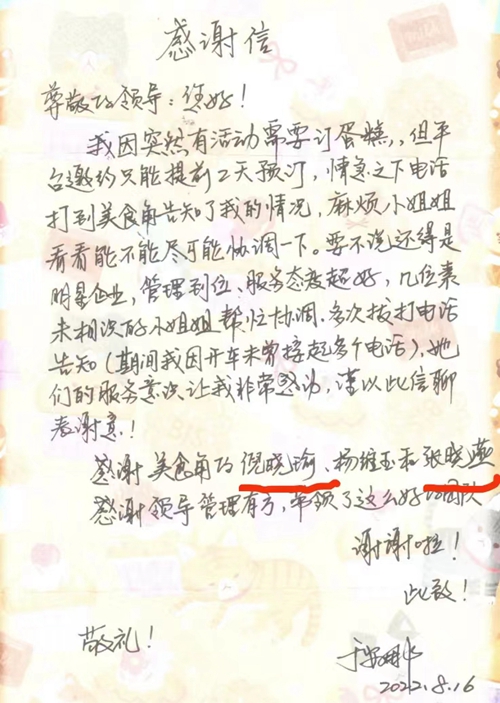 感谢信
尊敬的领导：您好！
我因突然有活动需要订蛋糕，但平
台邀约只能提前2天预订，情急之下电话
打到美食角告知了我的情况，麻烦小姐姐
看看能不能尽可能协调一下。要不说还得是
明星企业，管理到位、服务态度超好，几位素
未相识的小姐姐帮忙协调.多次拔打电话
告知（期间我因开车未曾接起多个电话），她
们的服务意识让我非常感动，谨以此信聊
表谢意！
感谢美食角的倪晓瑜、杨维玉和张晓燕
感谢领导管理有方，带领了这么好的团队
谢谢啦！
此致！
敬礼！
2022.8.16